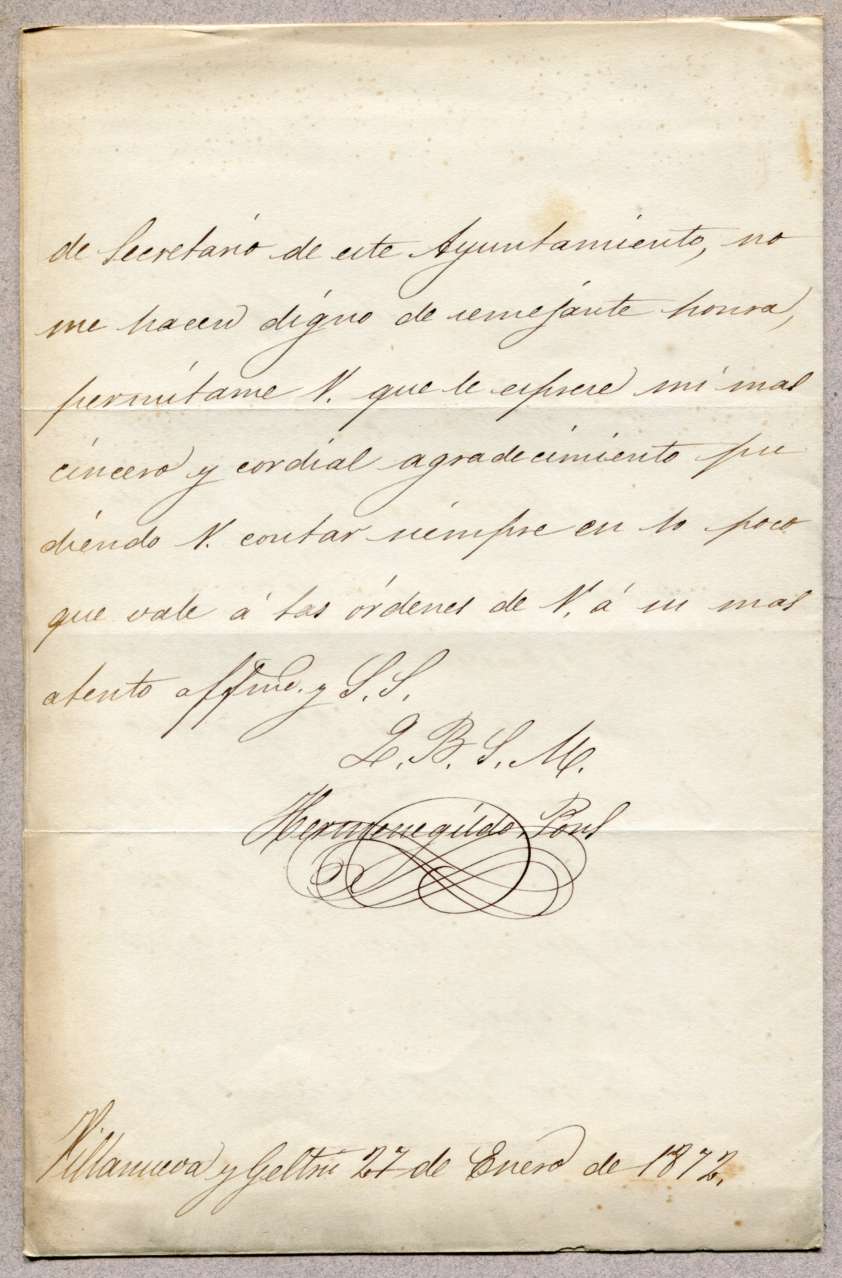 de Secretario de este Ayuntamiento, no
me hacen digno de semejante honra,
permítame V. que le esprese mi mas
cincero y cordial agradecimiento pu
diendo V. contar siempre en lo poco
que vale á las órdenes de V. á su mas
atento affmo. y S. S.
Q. B. S. M.
Hermenegildo Pons
Villanueva y Geltrú 27 de Enero de 1872.